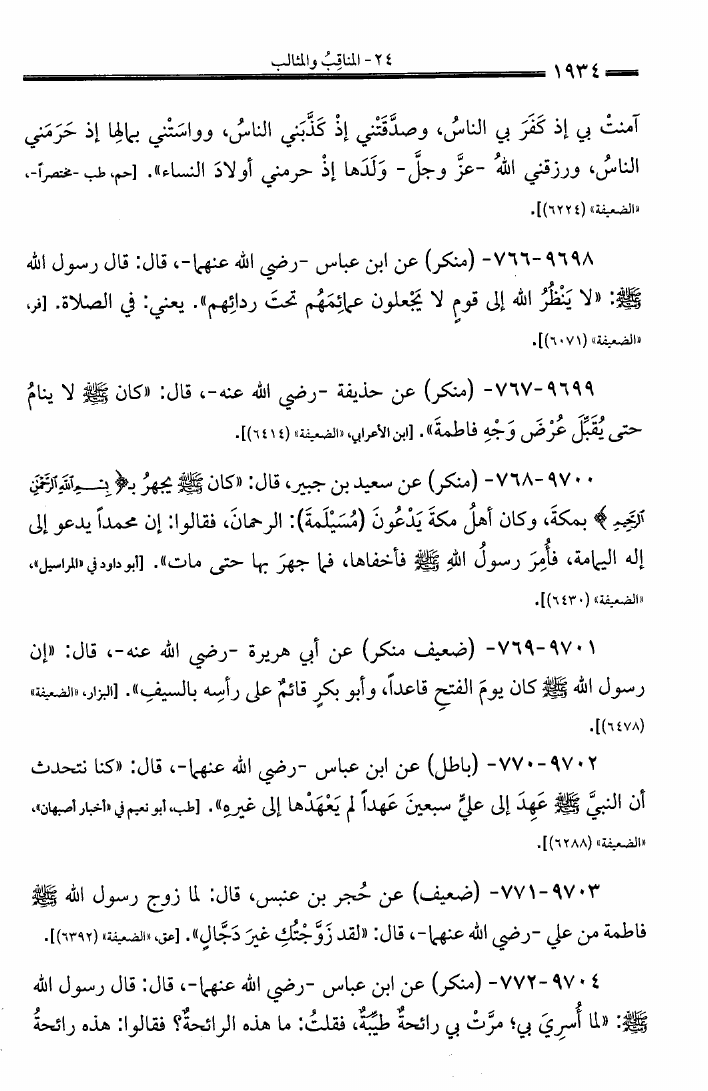 ١٩٣٤
٢٤- المناقِبُ والمثالب
آمنتْ بي إذ كَفَرَ بي الناسُ، وصدَّقَتْني إذْ كَذَّبَني الناسُ، وواسَتْني بمالِها إذ حَرَمَني
الناسُ، ورزقني اللهُ -عزَّ وجلَّ- وَلَدَها إذْ حرمني أولادَ النساء». [حم، طب -مختصراً-،
«الضعيفة» (٦٢٢٤)].
٩٦٩٨-٧٦٦- (منكر) عن ابن عباس -رضي الله عنهما-، قال: قال رسول الله
ﷺ: «لا يَنْظُرُ الله إلى قومٍ لا يَجْعلون عمائِمَهُم تحتَ ردائِهم». يعني: في الصلاة. [فر،
«الضعيفة» (٦٠٧١)].
٩٦٩٩-٧٦٧- (منكر) عن حذيفة -رضي الله عنه-، قال: «كان ﷺ لا ينامُ
حتى يُقَبِّلَ عُرْضَ وَجْهِ فاطمةَ». [ابن الأعرابي، «الضعيفة» (٦٤١٤)].
٩٧٠٠-٧٦٨- (منكر) عن سعيد بن جبير، قال: «كان ﷺ يجهرُ بـ﴿ بِسْمِ اللَّهِ الرَّحْمَنِ
الرَّحِيمِ ﴾ بمكةَ، وكان أهلُ مكةَ يَدْعُونَ (مُسَيْلَمةَ): الرحمانَ، فقالوا: إن محمداً يدعو إلى
إله اليمامة، فأُمِرَ رسولُ اللهِ ﷺ فأخفاها، فما جهرَ بها حتى مات». [أبو داود في «المراسيل»،
«الضعيفة» (٦٤٣٠)].
٩٧٠١-٧٦٩- (ضعيف منكر) عن أبي هريرة -رضي الله عنه-، قال: «إن
رسول الله ﷺ كان يومَ الفتحِ قاعداً، وأبو بكرٍ قائمٌ على رأسِه بالسيفِ». [البزار، «الضعيفة»
(٦٤٧٨)].
٩٧٠٢-٧٧٠- (باطل) عن ابن عباس -رضي الله عنهما-، قال: «كنا نتحدث
أن النبيَّ ﷺ عَهِدَ إلى عليٍّ سبعينَ عَهداً لم يَعْهَدْها إلى غيرِهِ». [طب، أبو نعيم في «أخبار أصبهان»،
«الضعيفة» (٦٢٨٨)].
٩٧٠٣-٧٧١- (ضعيف) عن حُجر بن عنبس، قال: لما زوج رسول الله ﷺ
فاطمة من علي -رضي الله عنهما-، قال: «لقد زَوَّجْتُكِ غيرَ دَجَّالٍ». [عق، «الضعيفة» (٦٣٩٢)].
٩٧٠٤-٧٧٢- (منكر) عن ابن عباس -رضي الله عنهما-، قال: قال رسول الله
ﷺ: «لما أُسرِيَ بي؛ مرَّتْ بي رائحةٌ طيِّبةٌ، فقلتُ: ما هذه الرائحةُ؟ فقالوا: هذه رائحةُ